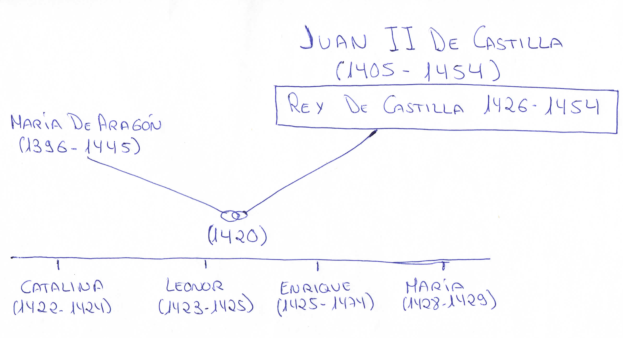 JUAN II DE CASTILLA
(1405 - 1454)
REY DE CASTILLA 1426-1454
MARÍA DE ARAGÓN
(1396-1445)
(1420)
CATALINA
(1422-1424)
LEONOR
(1423-1425)
ENRIQUE
(1425-1474)
MARÍA
(1428-1429)